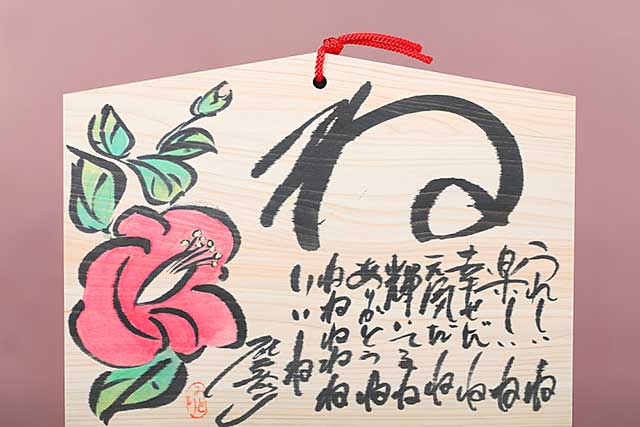 ね
うれしいね
楽しいね
幸せだね
元気だね
輝いてるね
ありがとうね
ねねねねね
いいね